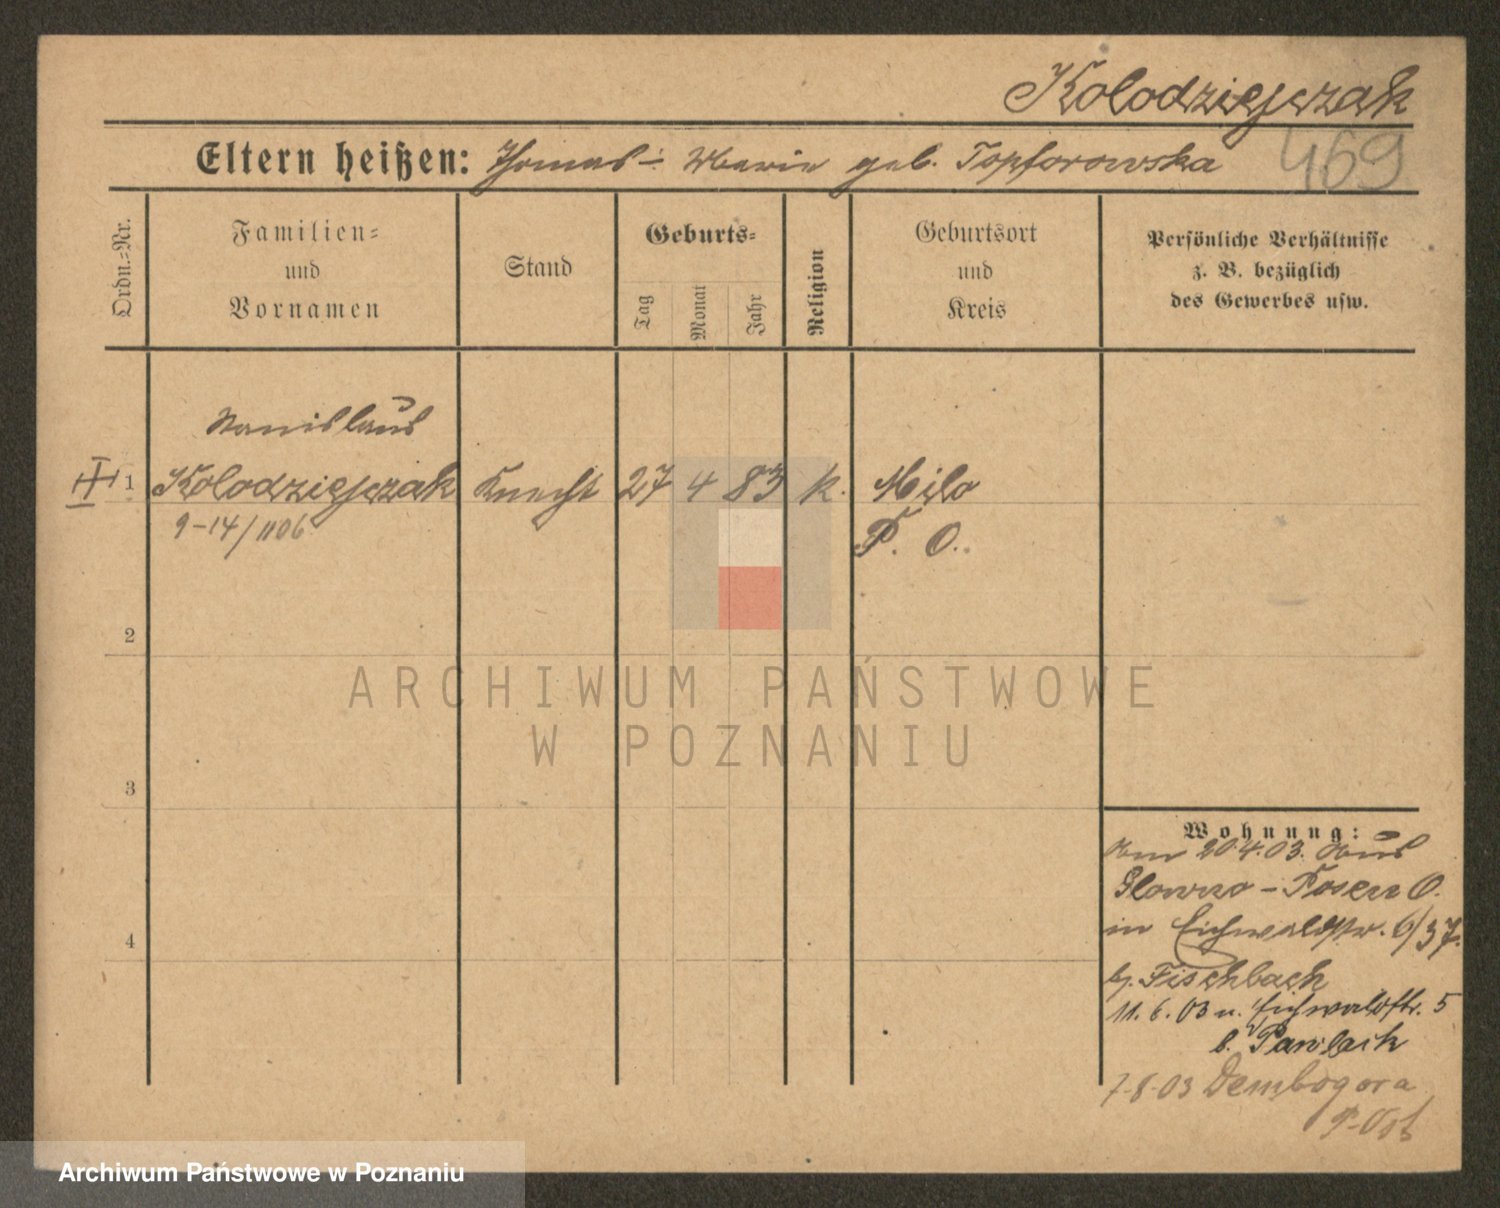 Kolodziejczak
Eltern heißen: Thomas - Marie geb. Topforowska
469
Ordn.-Nr.
Familien-
und
Vornamen
Stand
Geburts-
Tag
Monat
Jahr
Religion
Geburtsort
und
Kreis
Persönliche Verhältnisse
z. B. bezüglich
des Gewerbes usw.
Stanislaus
1 Kolodziejczak Knecht 27 4 83 k. Milo
9-14/1106 P. O.
2
3
4
Wohnung:
Am 20.4.03. aus
Glowno - Posen O.
in Eichwaldstr. 6/37.
b. Fischbach
11.6.03 n. Eichwaldstr. 5
b. Pawlack
7.8.03 Dembogora
P-Ost
ARCHIWUM PAŃSTWOWE
W POZNANIU
Archiwum Państwowe w Poznaniu